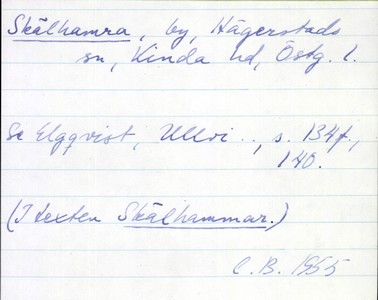 Skälhamra, by, Hägerstads
sn, Kinda hd, Östg. l.
Se Elgqvist, Ullvi.., s. 134f.,
140.
(I texten Skälhammar.)
C.B. 1955